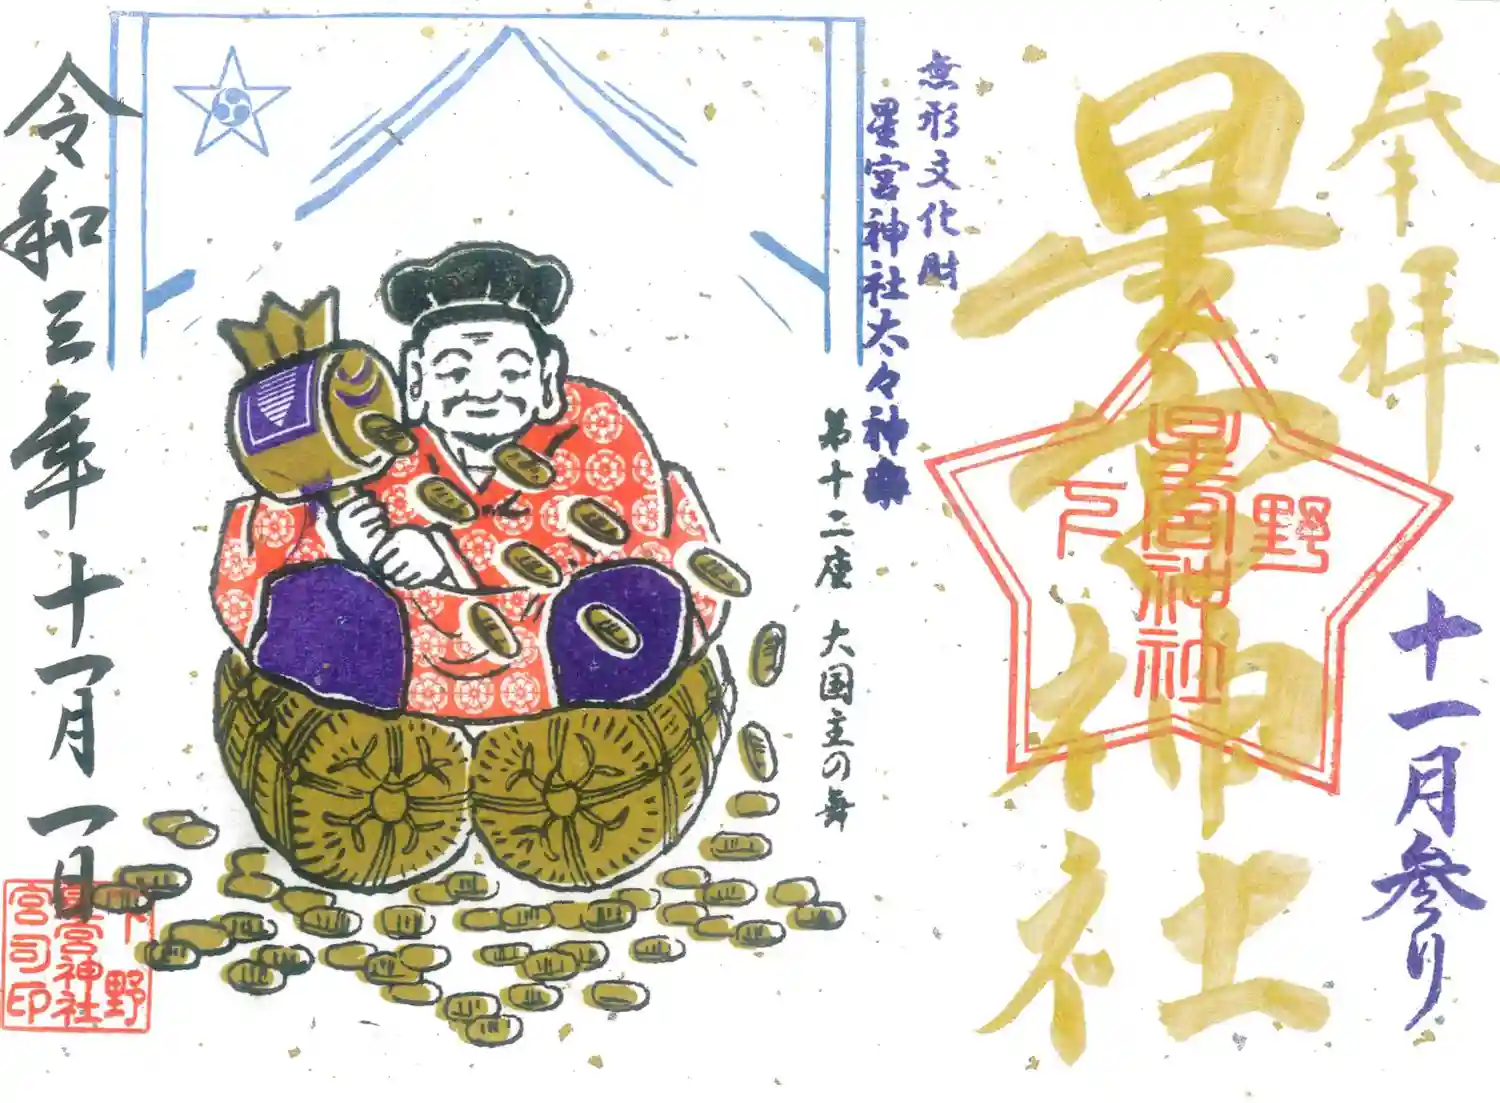 奉拝
星宮神社
下野
星宮神社
十一月参り
無形文化財
星宮神社太々神楽
第十二座 大国主の舞
令和三年十一月一日
下野
星宮神社
宮司印